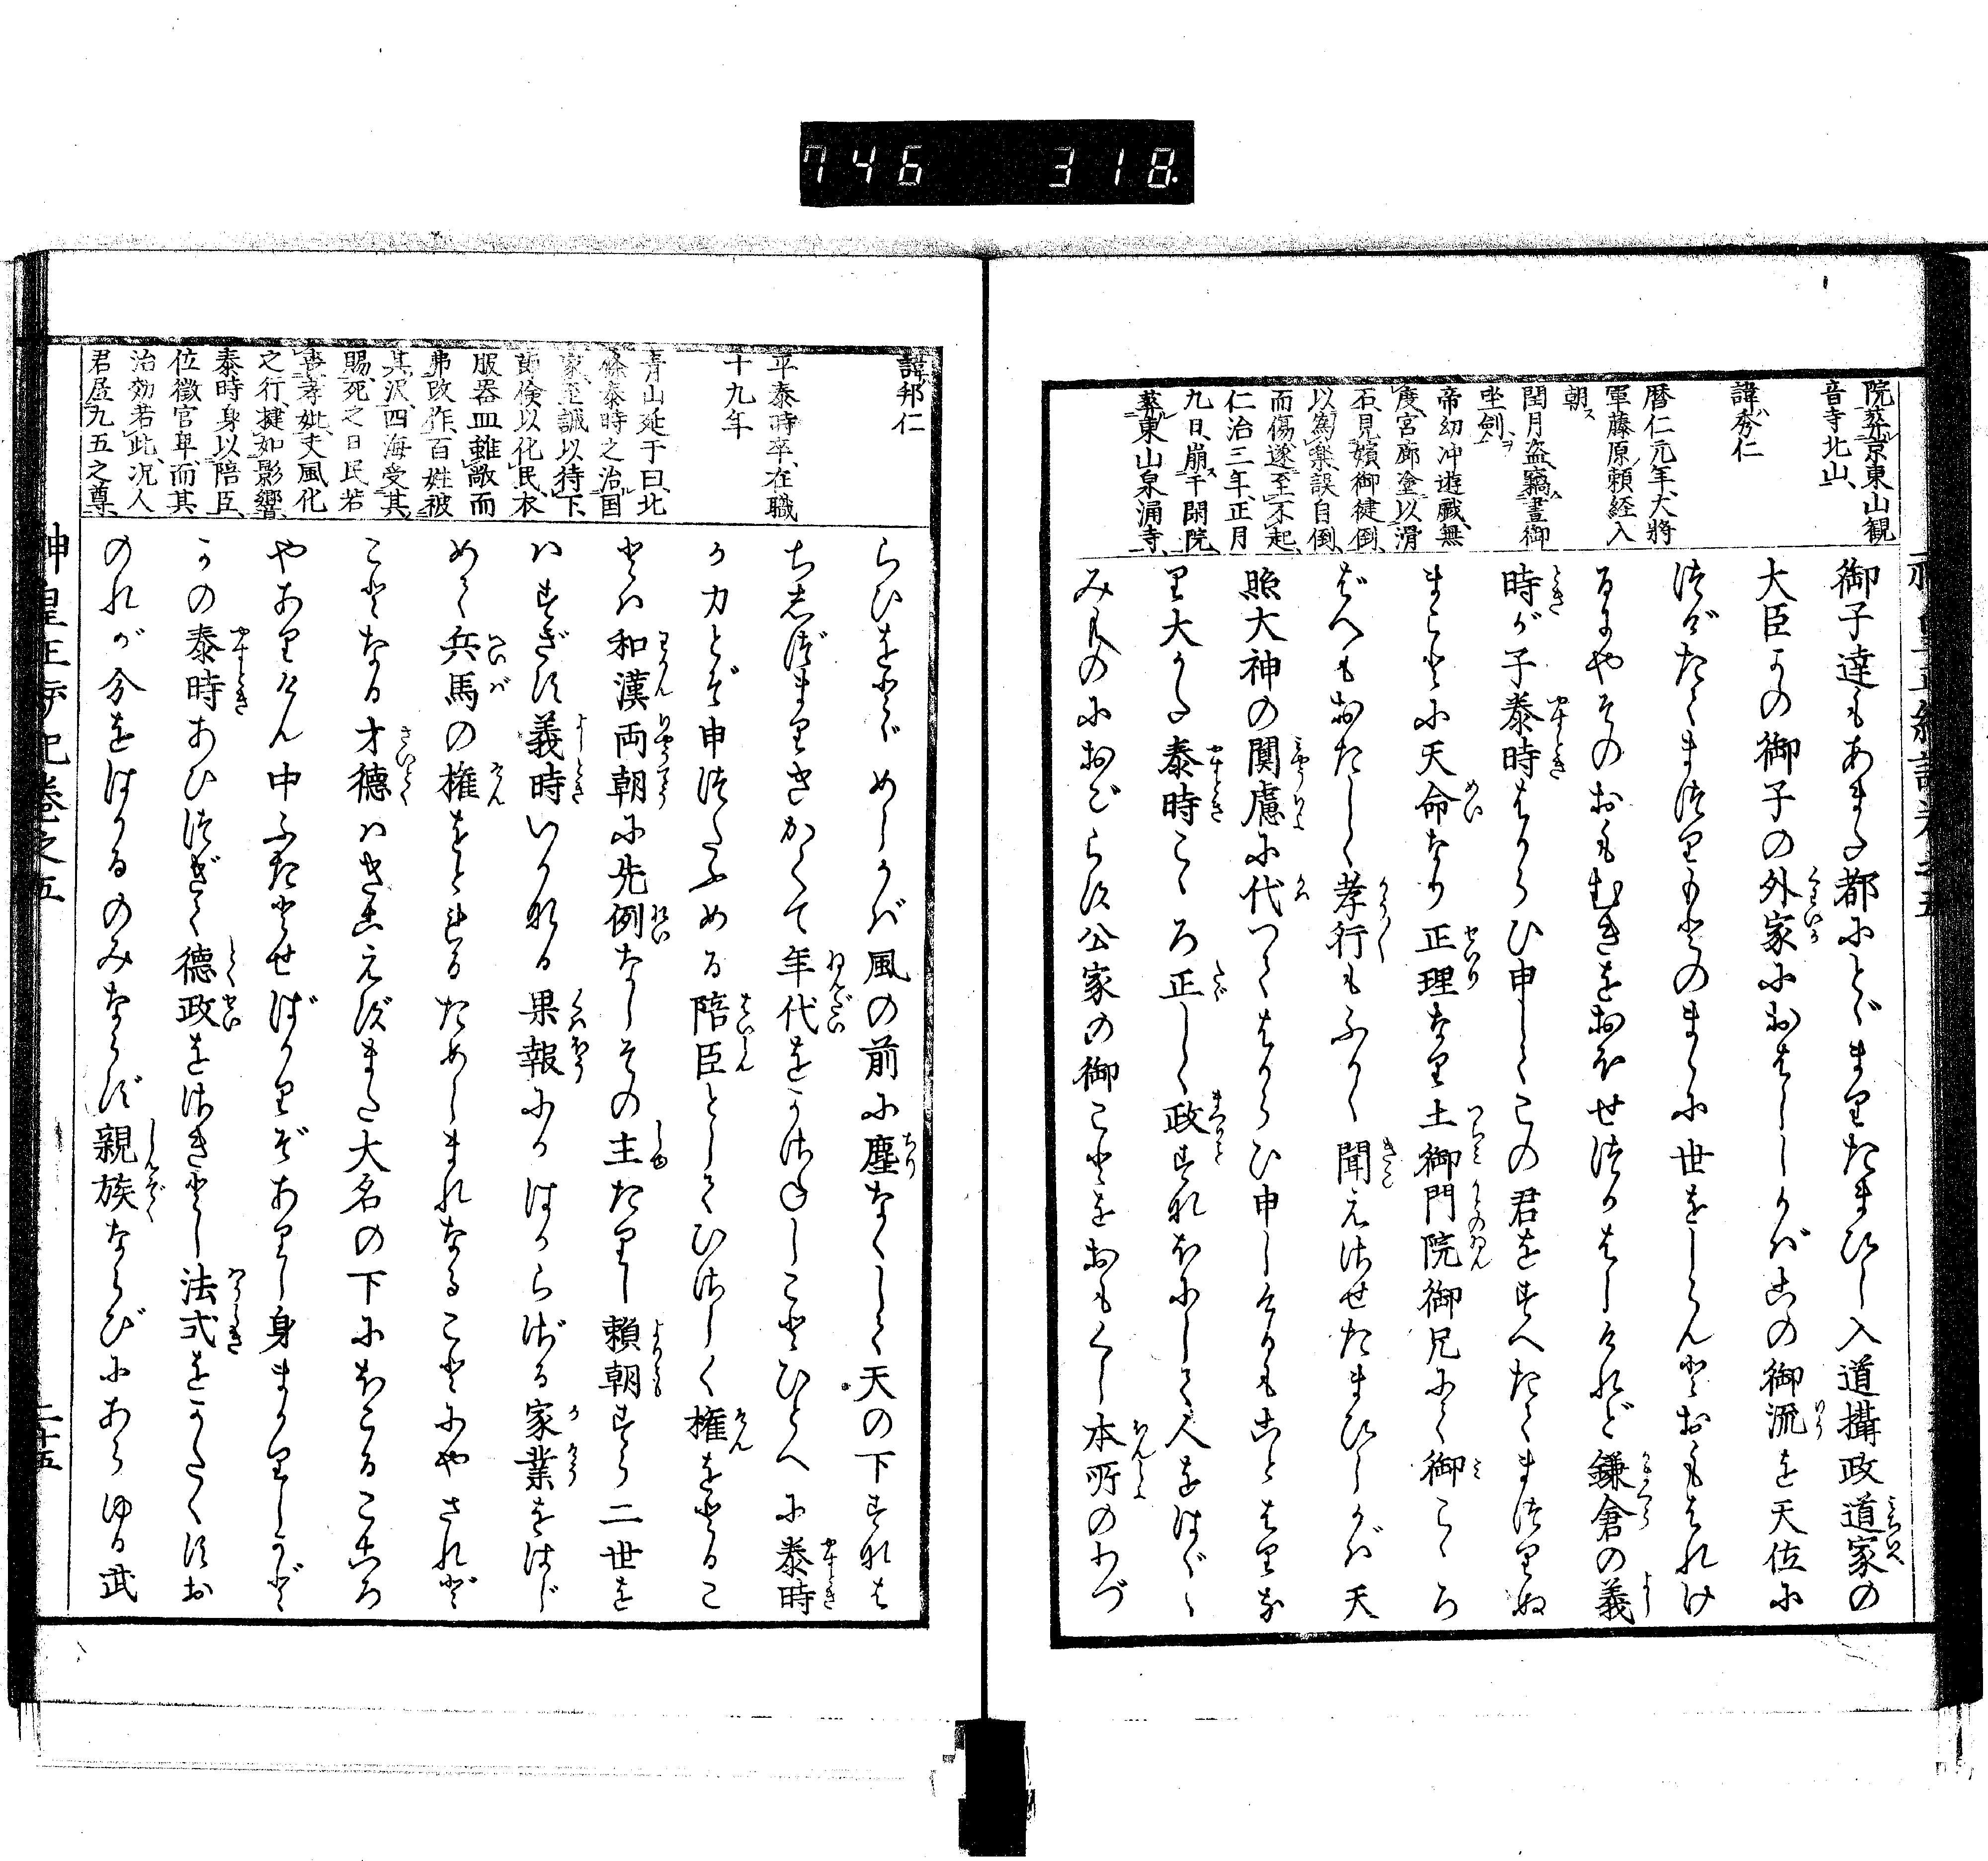 院葬京東山観
音寺北山
諱秀仁
暦仁元年大將
軍藤原頼経入
朝ス
閏月盗竊晝御
坐劍ヲ
帝幼冲遊戲無
度宮廊塗以滑
石見嬪御健倒
以爲樂誤自倒
而傷遂至不起
仁治三年正月
九日崩ス于閑院
葬東山泉涌寺
御子達もあまた都にとゞまりたまひし入道攝政道家の
大臣かの御子の外家におはしゝかばこの御流を天位に
つぎたてまつりもとのまゝに世をしらんとおもはれけ
るにやそのおもむきをおほせつかはしけれど鎌倉の義
時が子泰時はからひ申してこの君をすへたてまつりぬ
まことに天命なり正理なり土御門院御兄にて御こゝろ
ばへもおたしく孝行もふかく聞えさせたまひしかば天
照大神の冥慮に代つてはからひ申しけるもことはりな
り大かた泰時こゝろ正しく政すなほにして人をはぐゝ
みものにおごらず公家の御ことをおもくし本所のわづ
諱邦仁
平泰時卒在職
十九年
青山延于曰北
條泰時之治国
家至誠以待下
節儉以化民衣
服器皿雖敝而
弗改作百姓被
其沢四海受其
賜死之日民若
喪考妣夫風化
之行捷如影響
泰時身以陪臣
位徵官卑而其
治効若此况人
君居九五之尊
らひをとゞめしかば風の前に塵なくして天の下すなは
ちしづまりきかくて年代をかさねしことひとへに泰時
が力とぞ申つたふめる陪臣としてひさしく權をとるこ
とは和漢両朝に先例なしその主たりし頼朝すら二世を
ハすぎず義時いかなる果報にかはからざる家業をはじ
めて兵馬の權をとれるためしまれなることにやされど
ことなる才德ハきこえずまた大名の下にほこるこころ
やありけん中ふたとせばかりぞありし身まかりしかど
かの泰時あひつぎて德政をさきとし法式をかたくすお
のれが分をはかるのみならず親族ならびにあらゆる武
神皇正統記巻之五
二十五